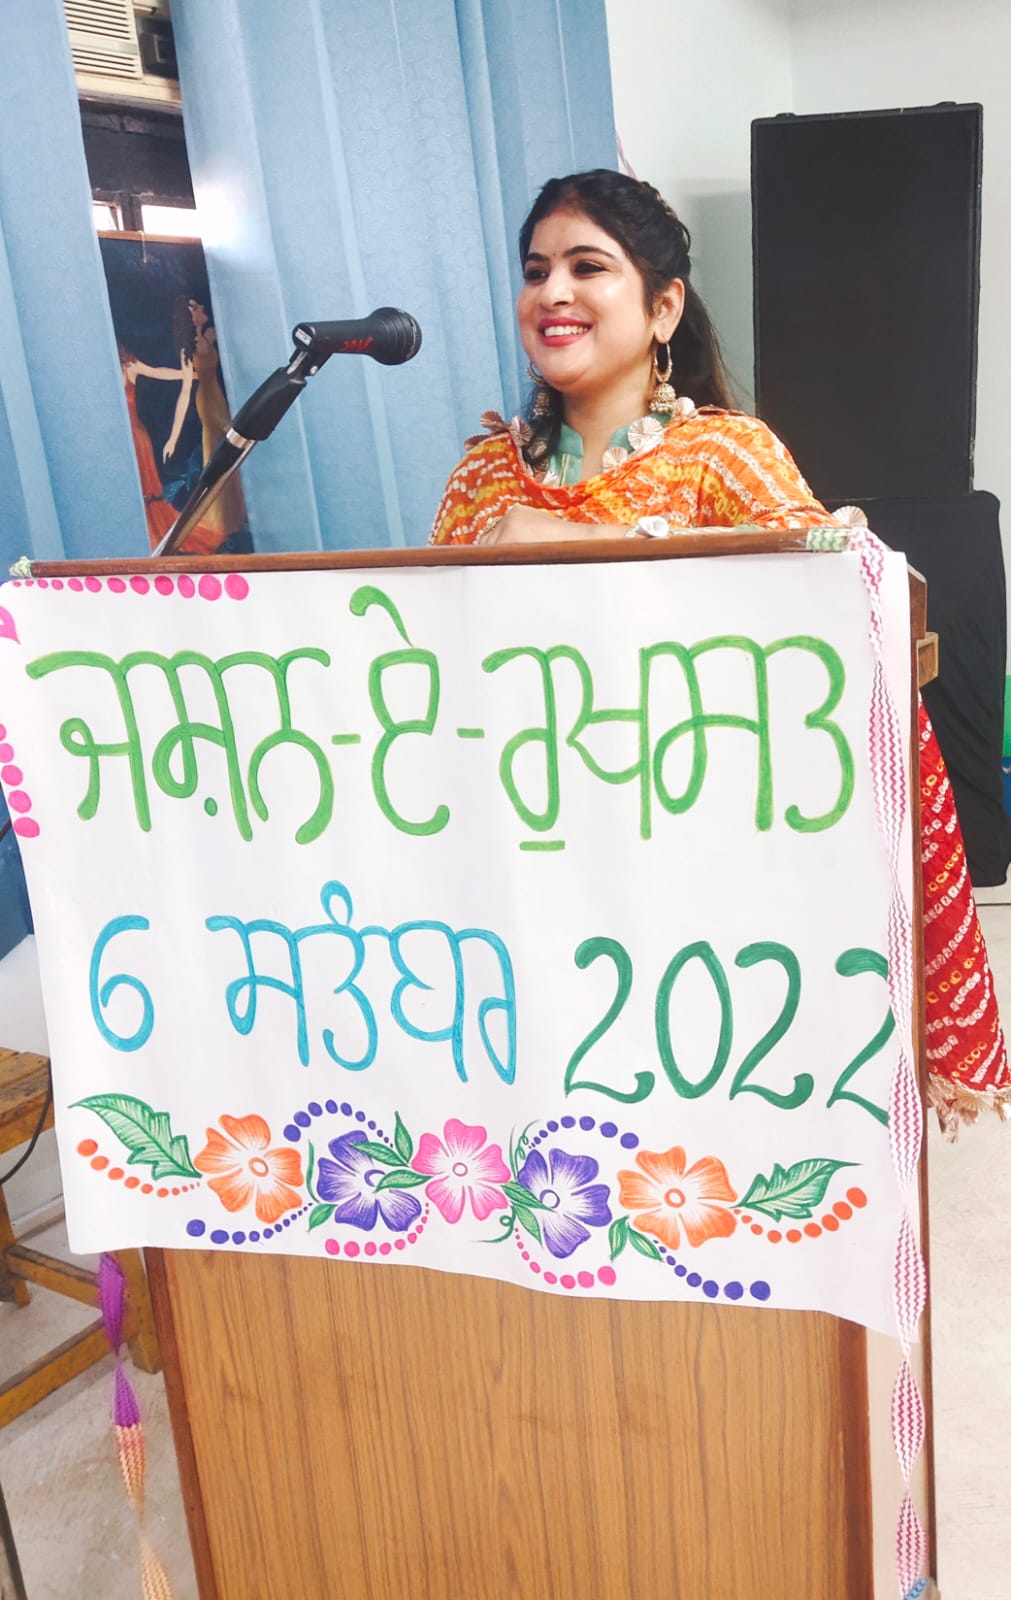 ਜਸ਼ਨ-ਏ-ਰੁਖਸਤ
6 ਸਤੰਬਰ 2022